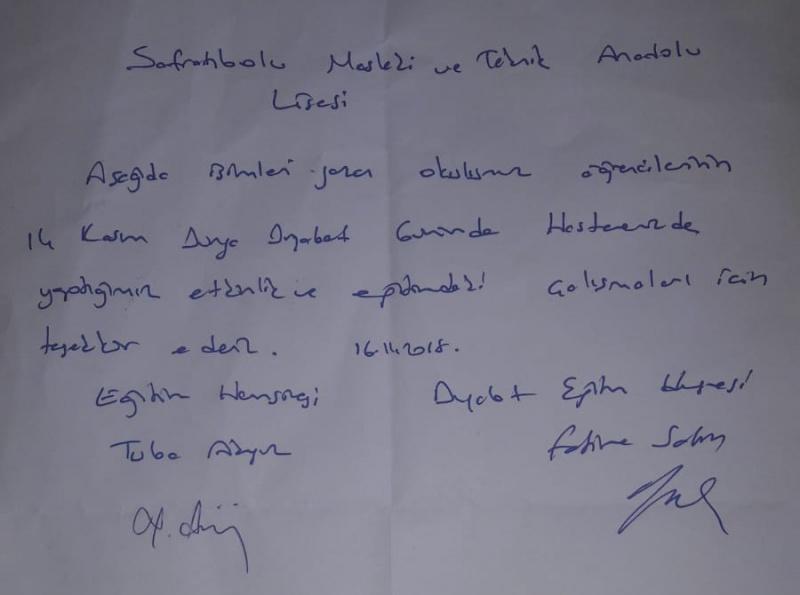 Safranbolu Mesleki ve Teknik Anadolu
Lisesi
Aşağıda isimleri yazan okulunuz öğrencilerinin
14 Kasım Dünya Diyabet Gününde Hastanemizde
yaptığımız etkinlik ve eğitimdeki çalışmaları için
teşekkür ederiz. 16.11.2018.
Eğitim Hemşiresi Diyabet Eğitim Hemşiresi
Tuba Fatma Şahin